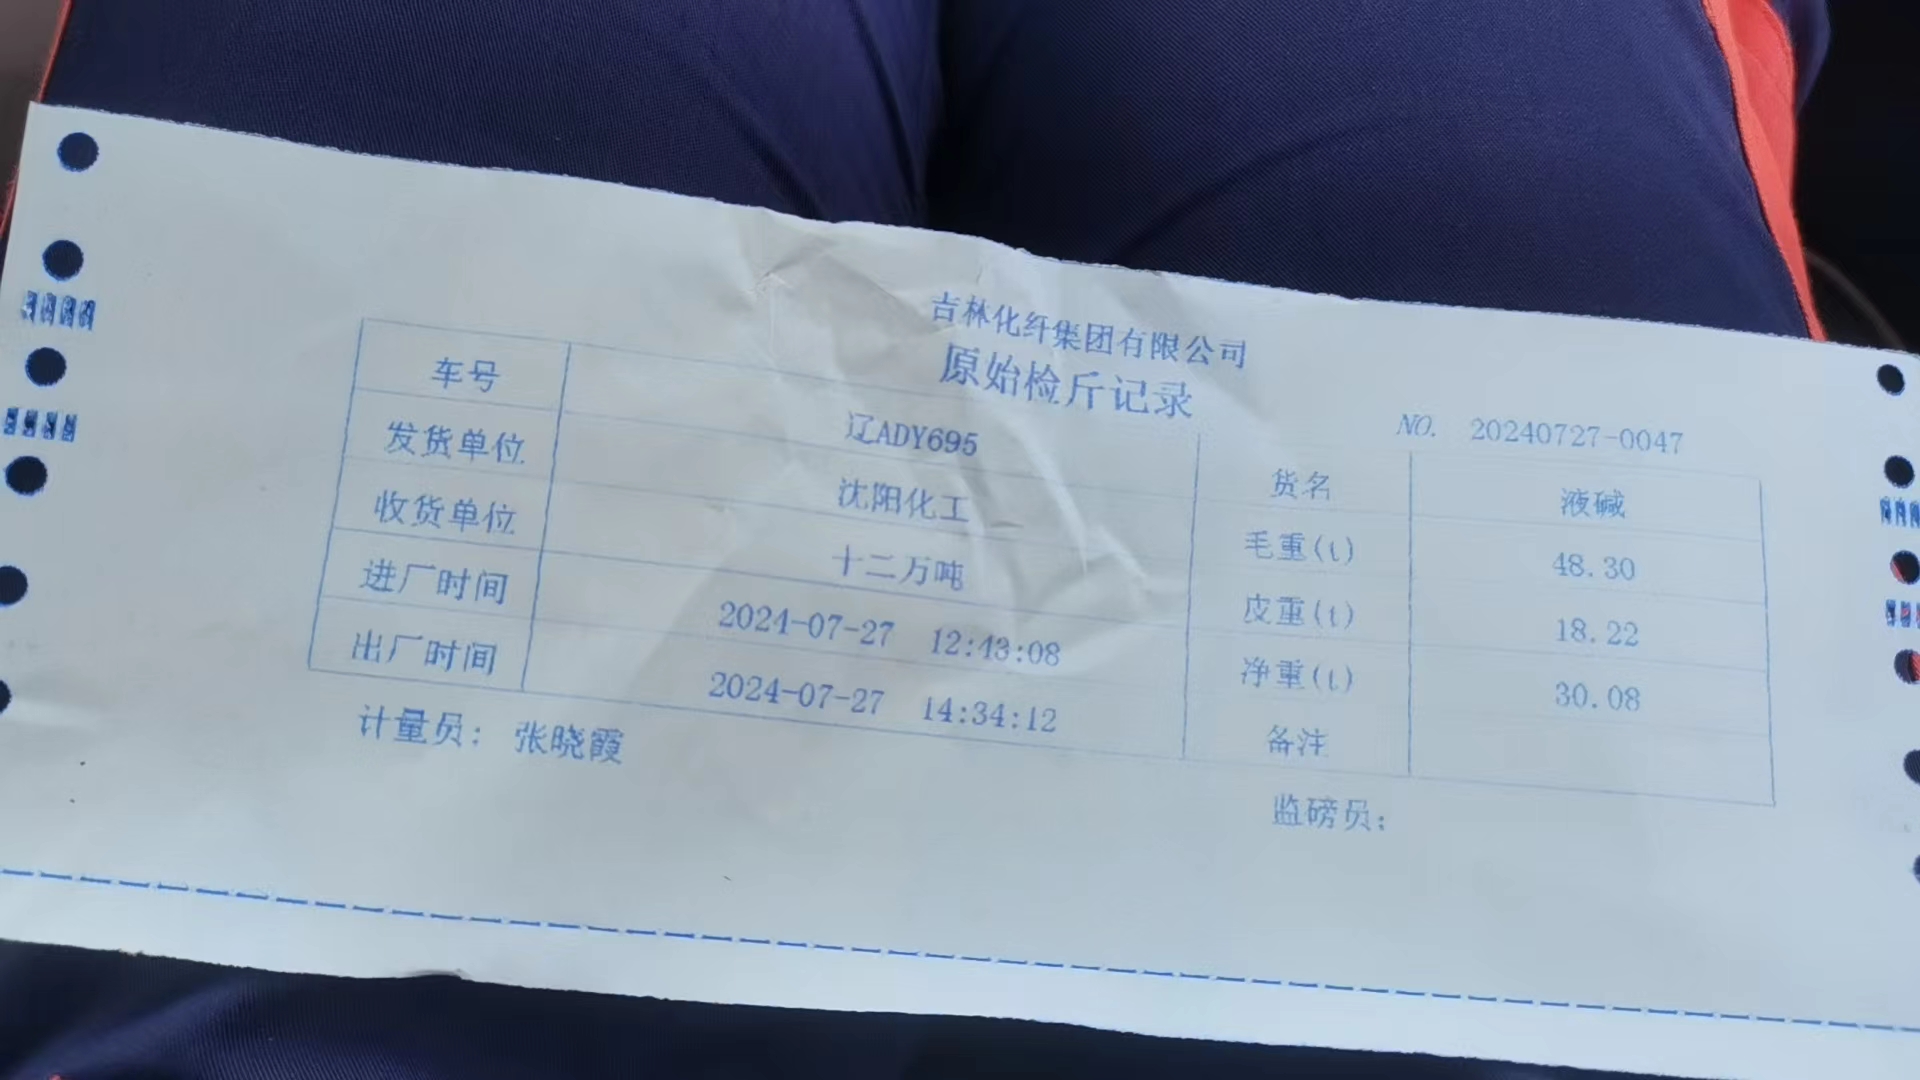 吉林化纤集团有限公司
原始检斤记录
NO. 20240727-0047
车号 辽ADY695 货名 液碱
发货单位 沈阳化工 毛重(t) 48.30
收货单位 十二万吨 皮重(t) 18.22
进厂时间 2024-07-27 12:43:08 净重(t) 30.08
出厂时间 2024-07-27 14:34:12 备注
计量员: 张晓霞 监磅员: